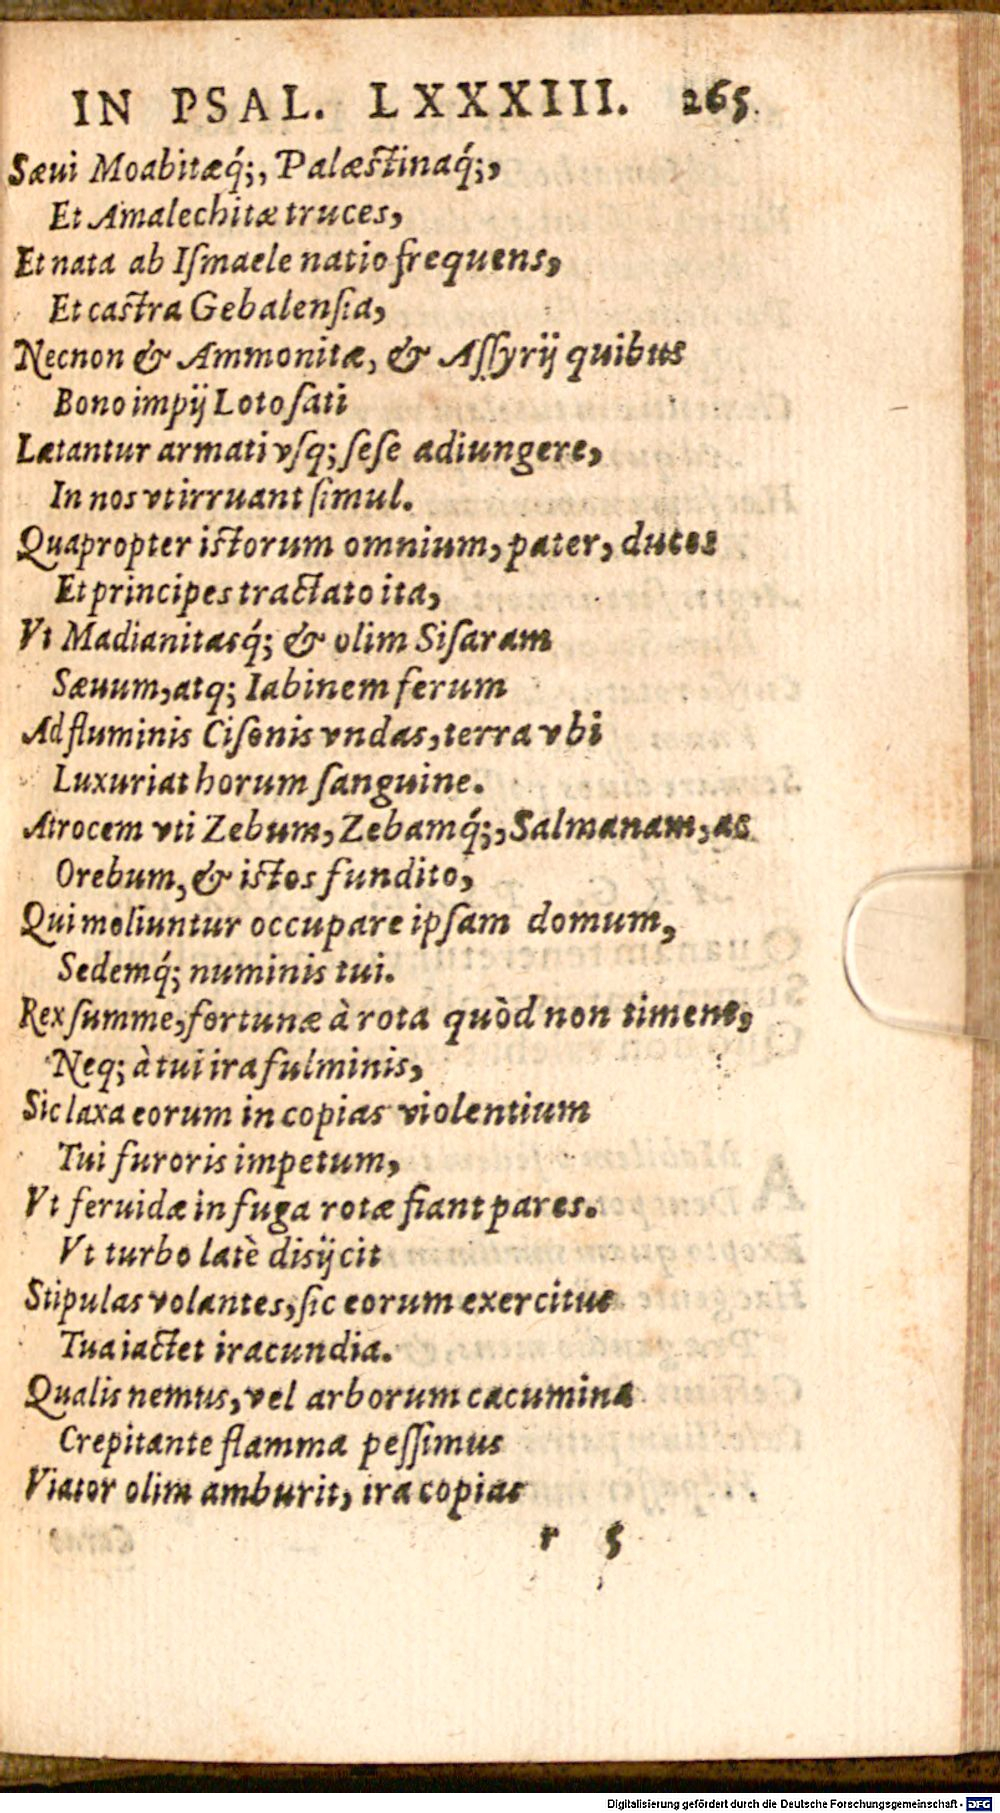 IN PSAL. LXXXIII. 265.
Sæui Moabitæq́;, Palæstinaq́;,
Et Amalechitæ truces,
Et nata ab Iſmaele natio frequens,
Et castra Gebalenſia,
Necnon & Ammonitæ, & Aſſyrij quibus
Bono impij Loto ſati
Lætantur armati vſq; ſeſe adiungere,
In nos vt irruant ſimul.
Quapropter istorum omnium, pater, duces
Et principes tractato ita,
Vt Madianitasq́; & olim Siſaram
Sæuum, atq; Iabinem ferum
Ad fluminis Ciſonis vndas, terra vbi
Luxuriat horum ſanguine.
Atrocem vti Zebum, Zebamq́;, Salmanam, ac
Orebum, & istos fundito,
Qui moliuntur occupare ipſam domum,
Sedemq́; numinis tui.
Rex ſumme, fortunæ à rota quòd non timent,
Neq; à tui ira fulminis,
Sic laxa eorum in copias violentium
Tui furoris impetum,
Vt feruidæ in fuga rotæ fiant pares.
Vt turbo latè disijcit
Stipulas volantes, ſic eorum exercitus
Tua iactet iracundia.
Qualis nemus, vel arborum cacumina
Crepitante flamma peſſimus
Viator olim amburit, ira copias
r 5
Digitalisierung gefördert durch die Deutsche Forschungsgemeinschaft - DFG